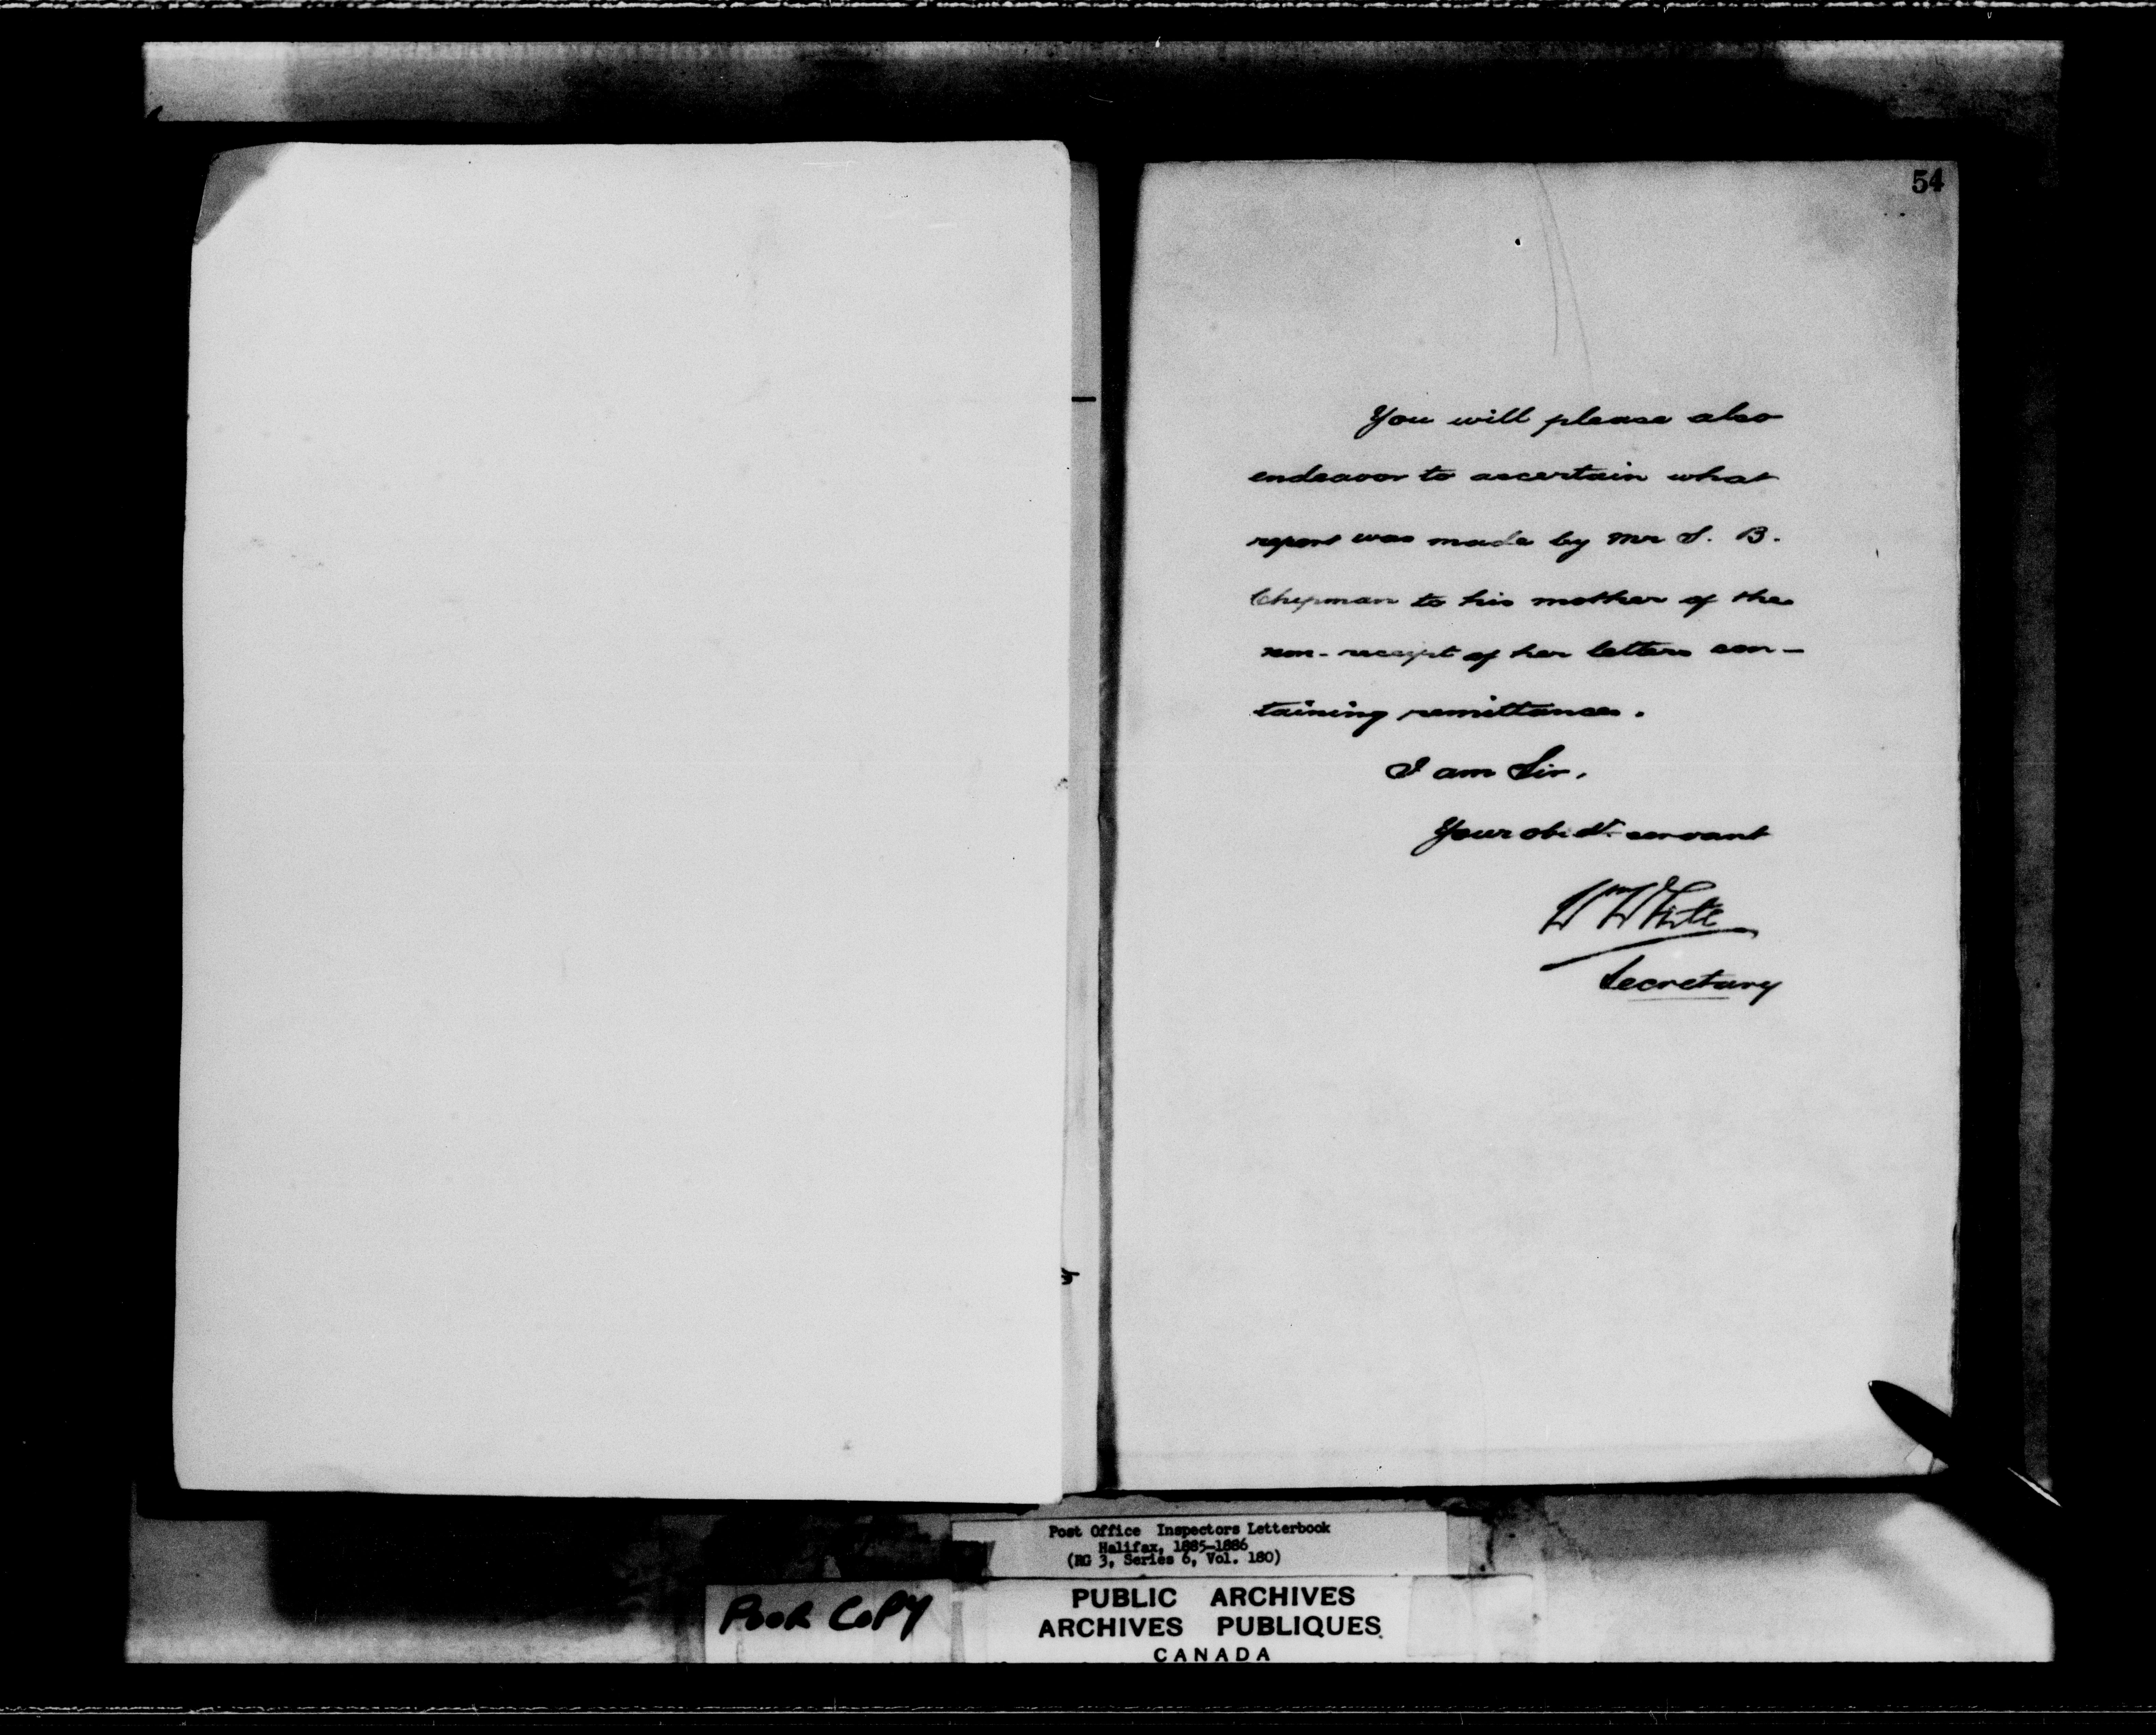 54
You will please also
endeavor to ascertain what
report was made by Mr S. B.
Chipman to his mother of the
non-receipt of her letters con-
taining remittances.
I am Sir,
Your obedt. servant
Wm White
Secretary
Post Office Inspectors Letterbook
Halifax, 1885-1886
(RG 3, Series 6, Vol. 180)
POOR COPY
PUBLIC ARCHIVES
ARCHIVES PUBLIQUES
CANADA